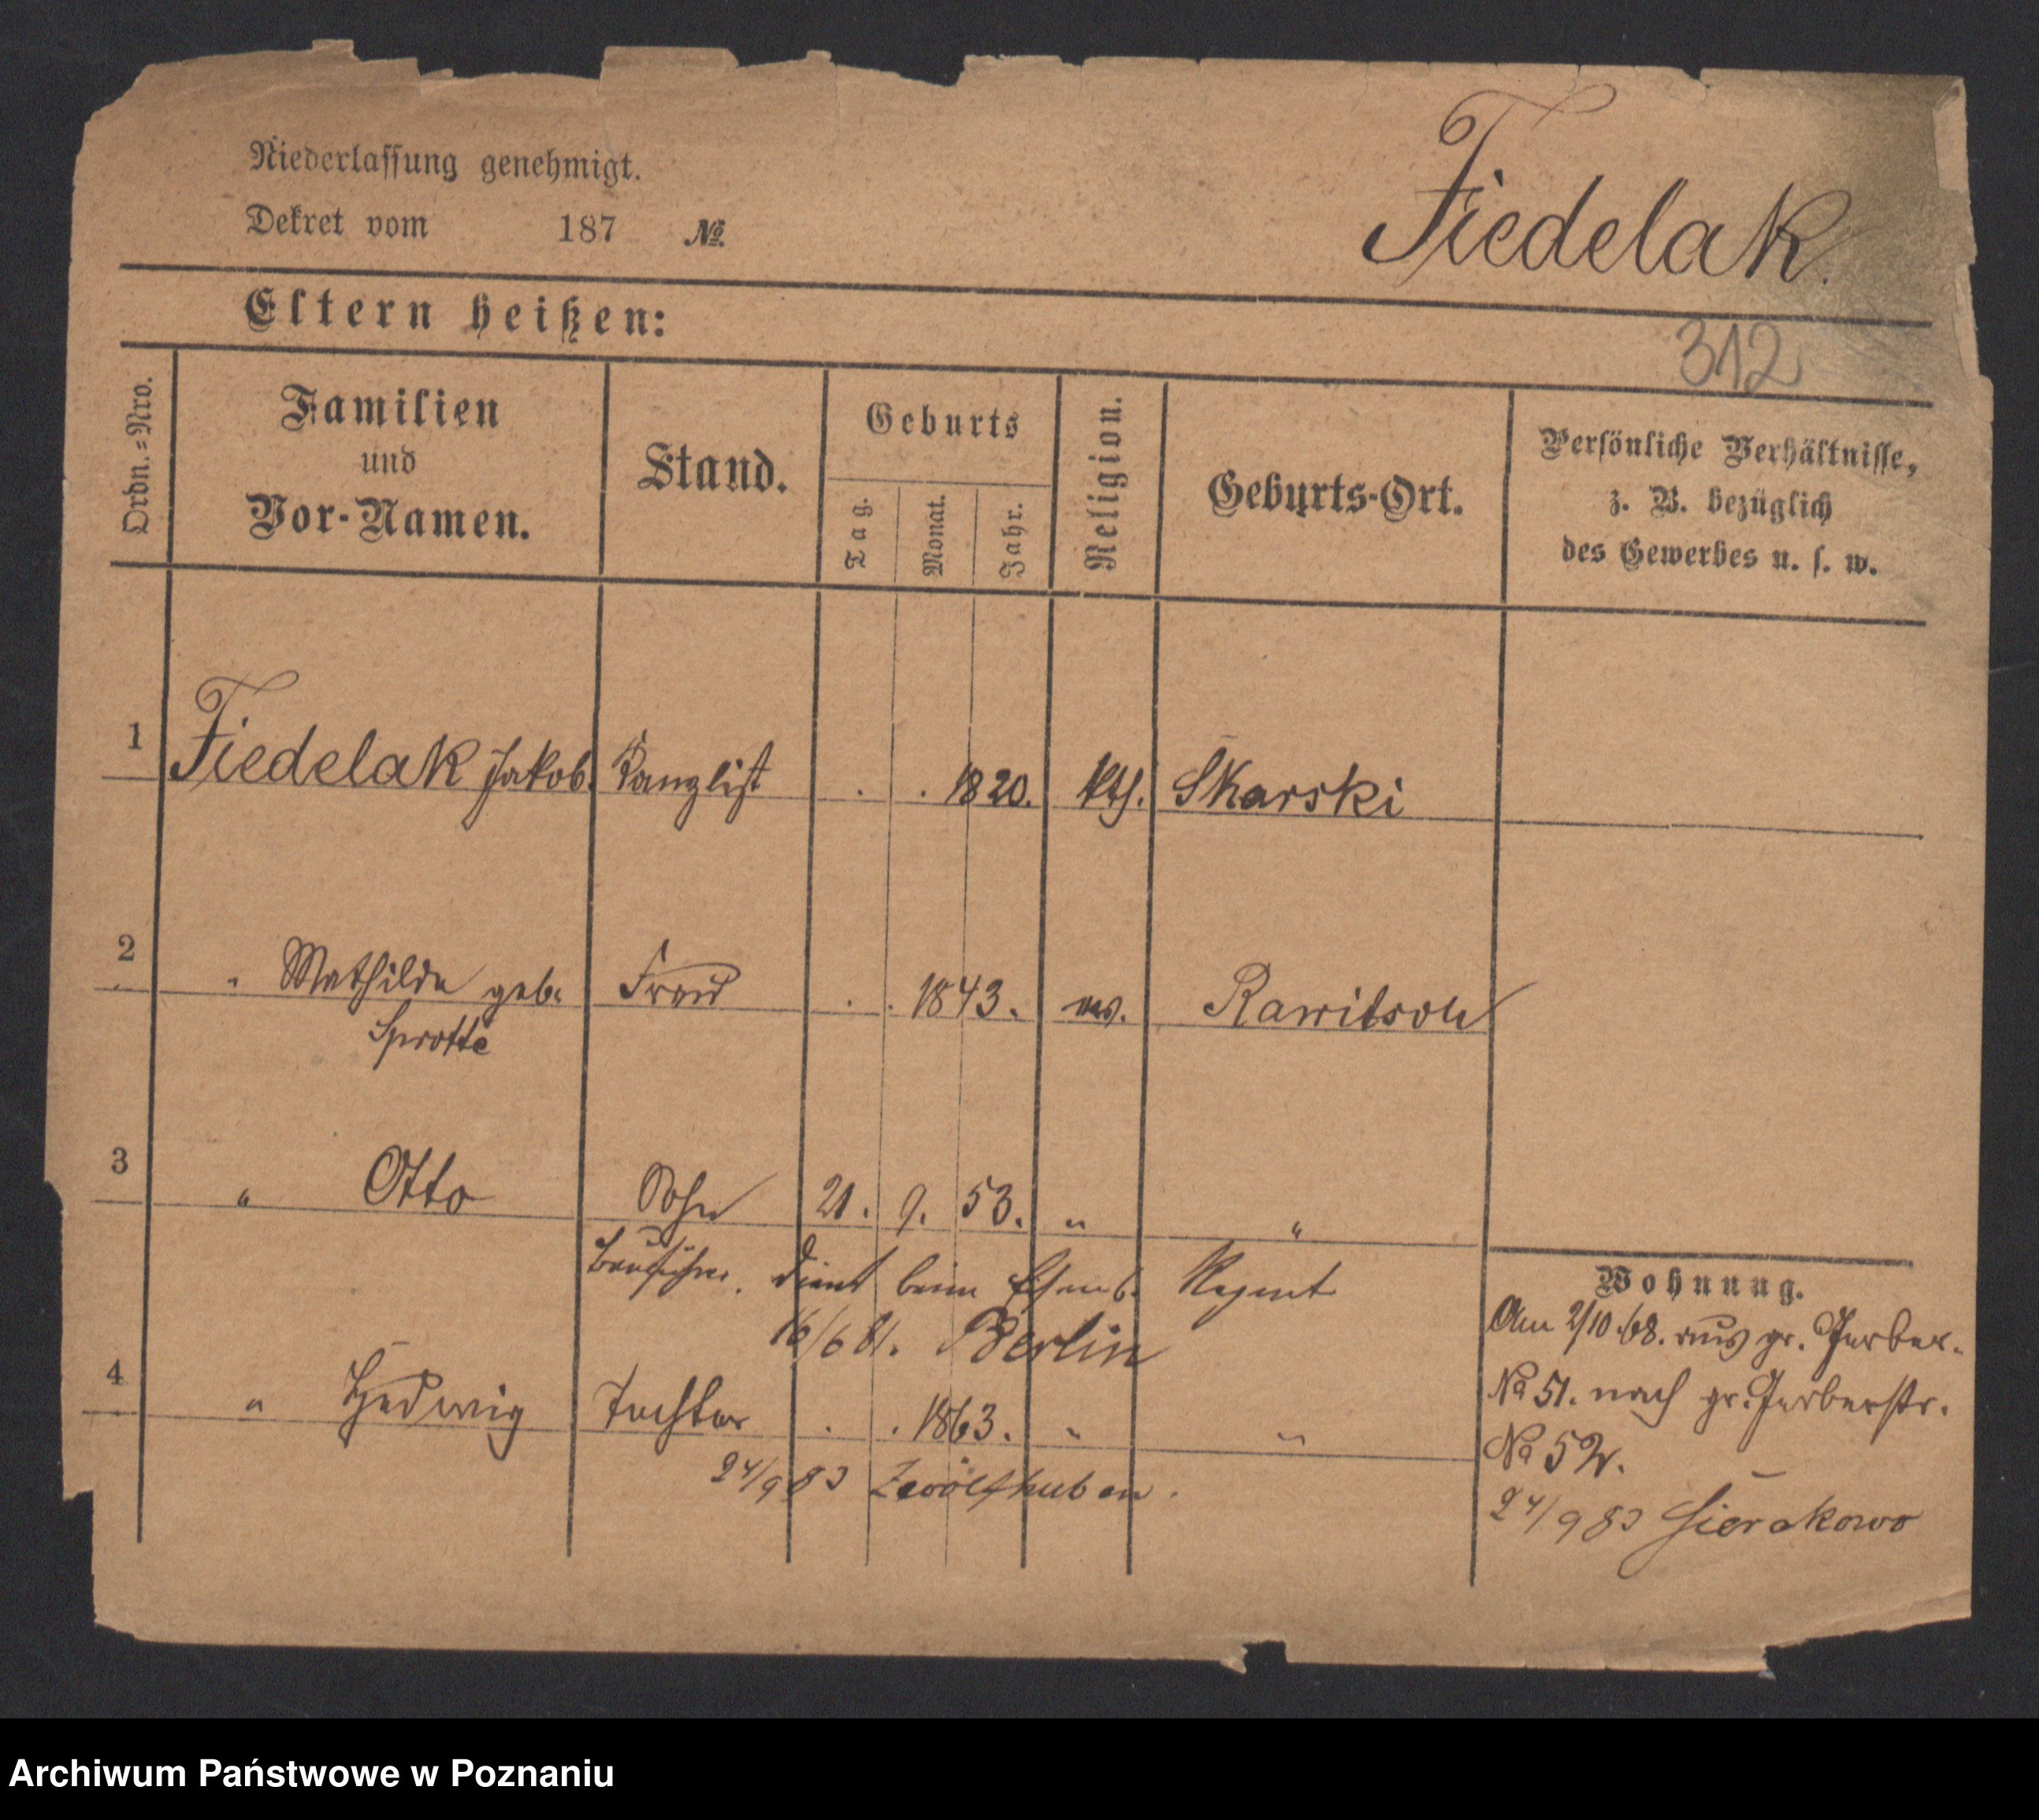 Niederlassung genehmigt.
Dekret vom 187 №
Fiedelak.
Eltern heißen:
312
Ordn.=Nro.
Familien
und
Vor-Namen.
Stand.
Geburts
Tag.
Monat.
Jahr.
Religion.
Geburts-Ort.
Persönliche Verhältnisse,
z. B. bezüglich
des Gewerbes u. s. w.
1 Fiedelak Jakob. Kanzlist . . 1820. kth. Skarski
2 " Mathilde geb. Frau . . 1843. ev. Rawitsch
Sprotte
3 " Otto Sohn 21. 9. 53. " "
Bauführer. dient beim Eisenb. Regmt
16/6 81. Berlin
4 " Hedwig Tochter . . 1863. " "
24/9 83 Zwölfhuben.
Wohnung.
Am 2/10.68. aus gr. Gerber.
No 51. nach gr. Gerberstr.
No 52.
24/9 83 Sierakowo
Archiwum Państwowe w Poznaniu